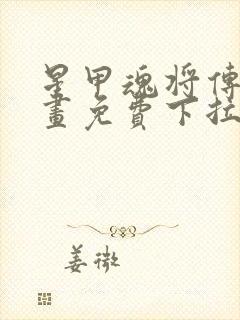 星甲魂将傳
畫免費下拉
姜微